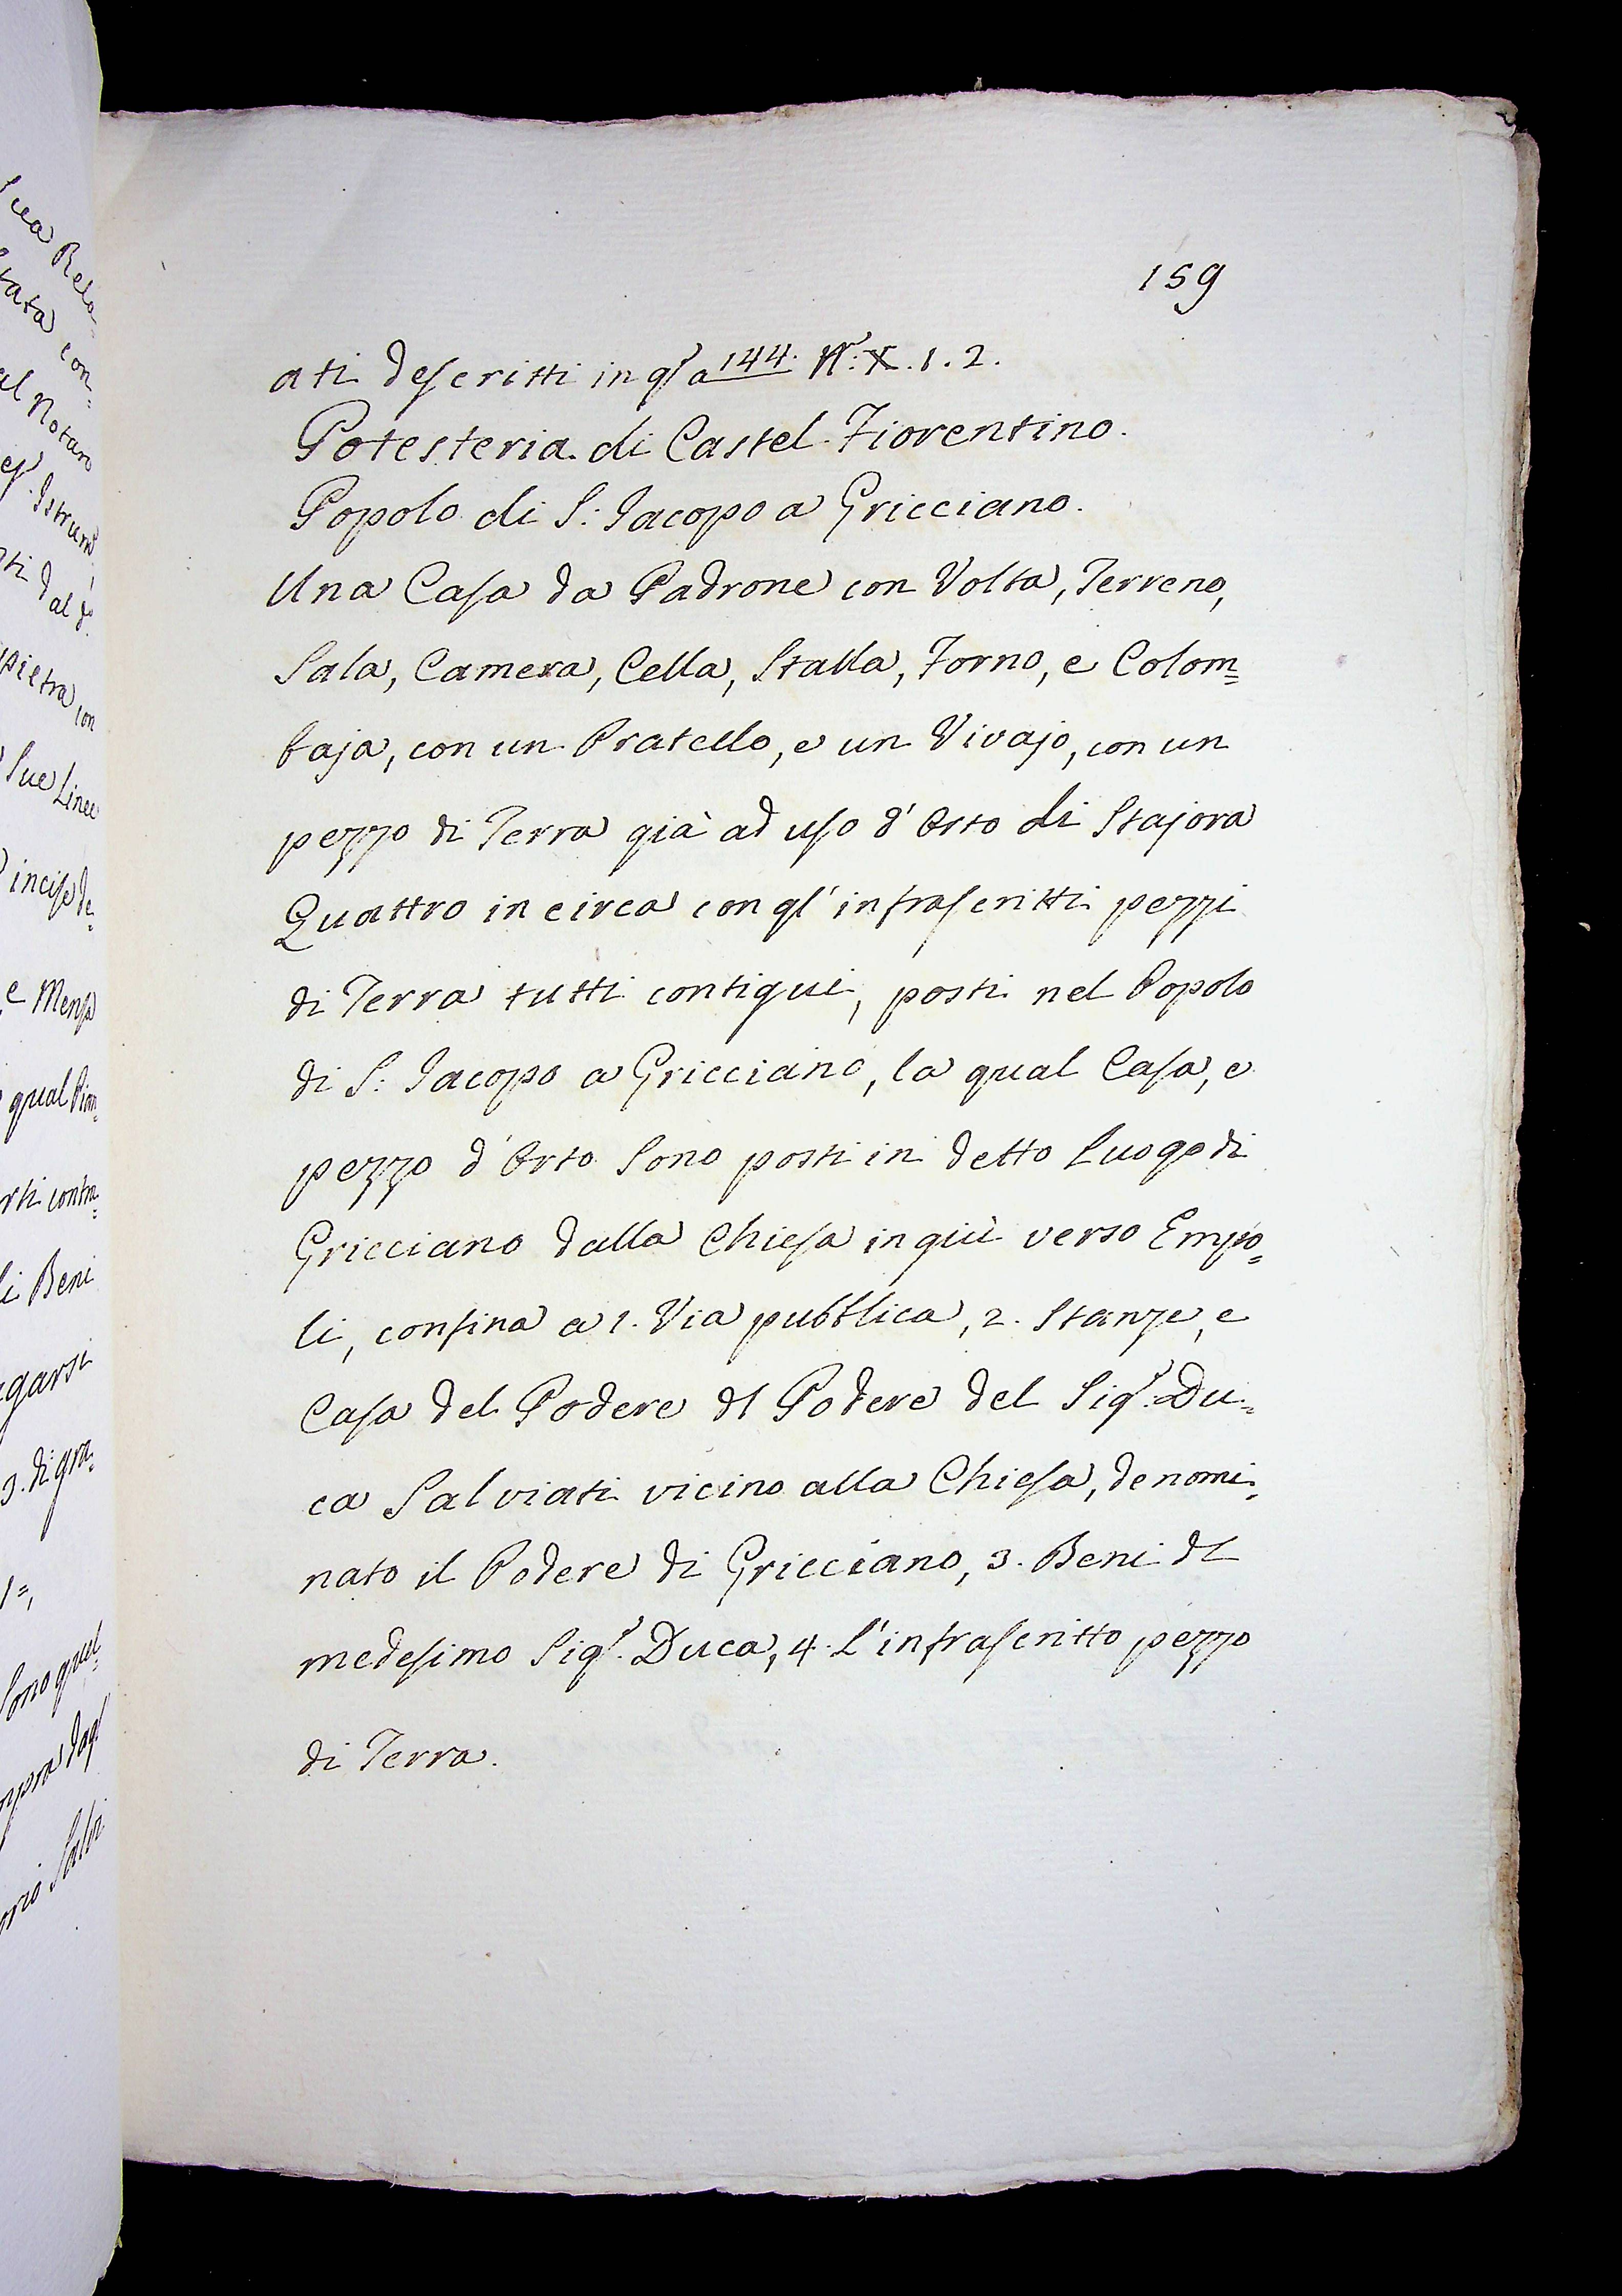 159
ati descritti in qsa 144. N.° X. 1. 2.
Potesteria di Castel Fiorentino.
Popolo di S: Jacopo a Gricciano.
Una Casa da Padrone con Volta, Terreno,
Sala, Camera, Cella, Stalla, Forno, e Colom=
baja, con un Pratello, e un Vivajo, con un
pezzo di Terra già ad uso d'Orto di Stajora
Quattro in circa con gl'infrascritti pezzi
di Terra tutti contigui, posti nel Popolo
di S: Jacopo a Gricciano, la qual Casa, e
pezzo d'Orto sono posti in detto Luogo di
Gricciano dalla Chiesa in giù verso Empo=
li, confina a 1. Via pubblica, 2. Stanze, e
Casa del Podere dl Podere del Sigr. Du=
ca Salviati vicino alla Chiesa, denomi=
nato il Podere di Gricciano, 3. Beni dl
medesimo Sigr. Duca, 4. L'infrascritto pezzo
di Terra.
sua Rela=
stata con=
al Notaro
Istrum
ti dal do.
pietra con
sue Linee
incise de=
e Mensa
qual Pian=
rti contra=
li Beni
garsi
3. di gra=
1=,
sono qual=